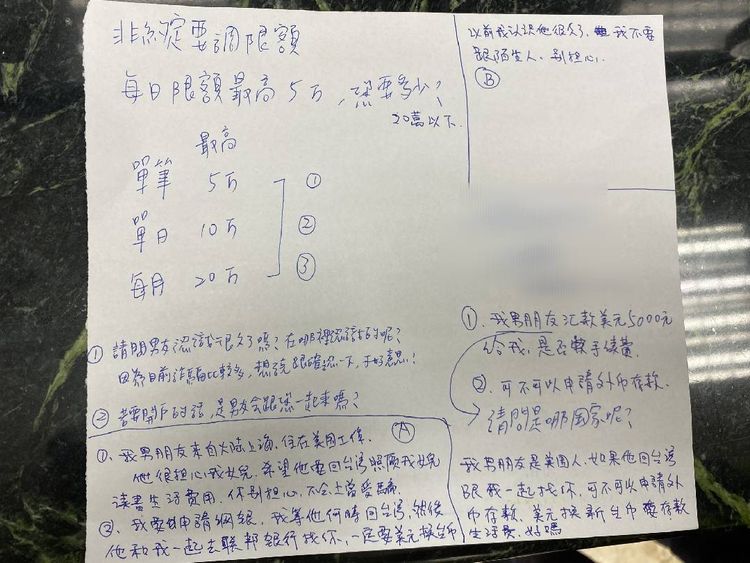 非約定要調限額
每日限額最高5万,您要多少?
20萬以下.
最高
單筆 5万 ①
單日 10万 ②
每月 20万 ③
以前我认识他很久了,我不要
跟陌生人.别担心.
Ⓑ
① 請問男友認識很久了嗎?在哪裡認識的呢?
因為目前詐騙比較多,想說跟您確認一下,不好意思!
② 若要開戶的話,是男友會跟您一起來嗎?
Ⓐ
①、我男朋友來自大陆上海,住在美国工作.
他很担心我女兒.希望他要回台湾照顾我女兒
读書生活費用.你别担心,不会上當受骗
②、我要申請網銀,我等他何時回台湾,然後
他和我一起去联邦銀行找你,一定要美元换台币
①.我男朋友汇款美元5000元
给我,是否較手续費.
②.可不可以申請外币存款.
請問是哪個國家呢?
我男朋友是美国人.如果他回台湾
跟我一起找你.可不可以申請外
币存款.美元换新台币要存款
生活費.好嗎